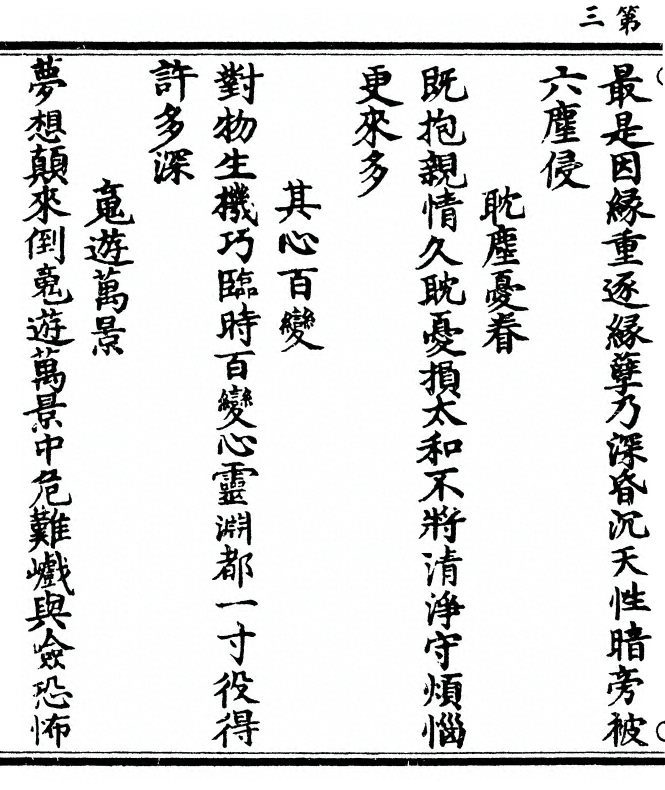 第三
最是因縁重逐縁孽乃深昏沉天性暗旁被
六塵侵
耽塵憂眷
既抱親情久耽憂損太和不將清淨守煩惱
更來多
其心百變
對物生機巧臨時百變心靈淵都一寸役得
許多深
䰟遊萬景
夢想顛來倒䰟遊萬景中危難巇與嶮恐怖